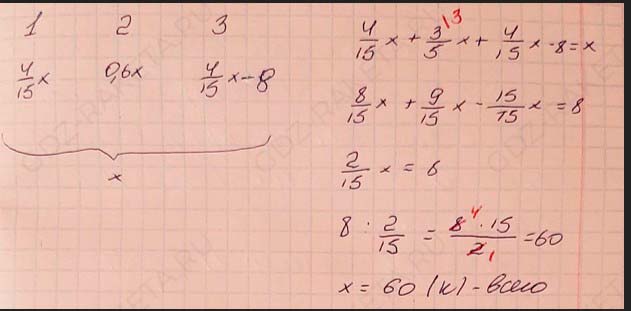 1 2 3
4/15 x 0,6x 4/15 x-8
x
4/15 x + 3/5 |3 x + 4/15 x - 8 = x
8/15 x + 9/15 x - 15/15 x = 8
2/15 x = 8
8 : 2/15 = 8 4 · 15 / 2 1 = 60
x = 60 (к) - всего